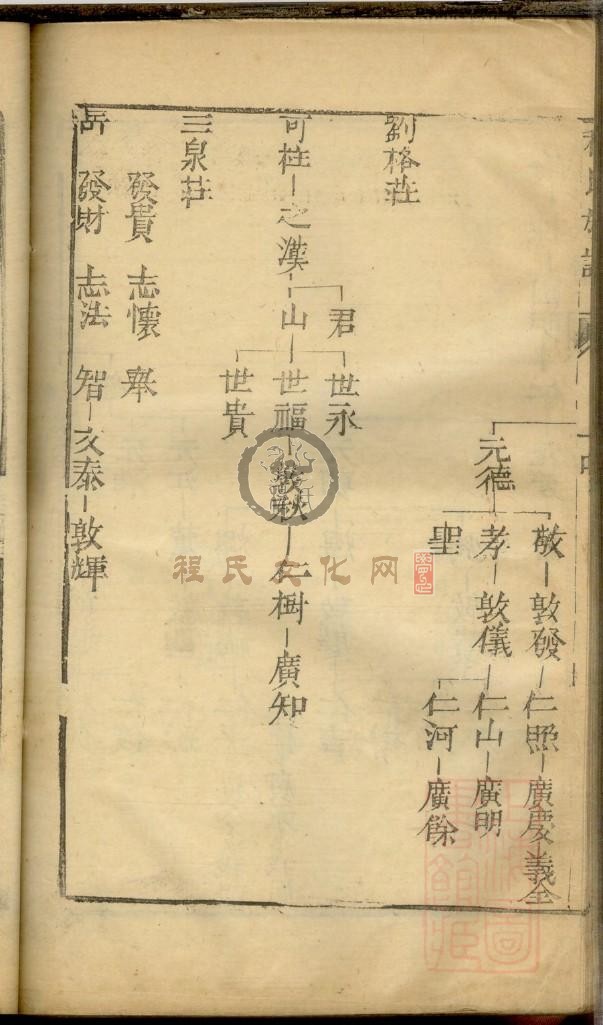 元德
敬 敦發 仁照 廣慶 義全
孝 敦儀 仁山 廣明
聖 仁河 廣餘
劉格莊
君 世永
可柱 之漢 山 世福 敦秋 仁樹 廣知
世貴
三泉莊
發貴 志懷 舉
發財 志法 智 文泰 敦輝
程氏文化网